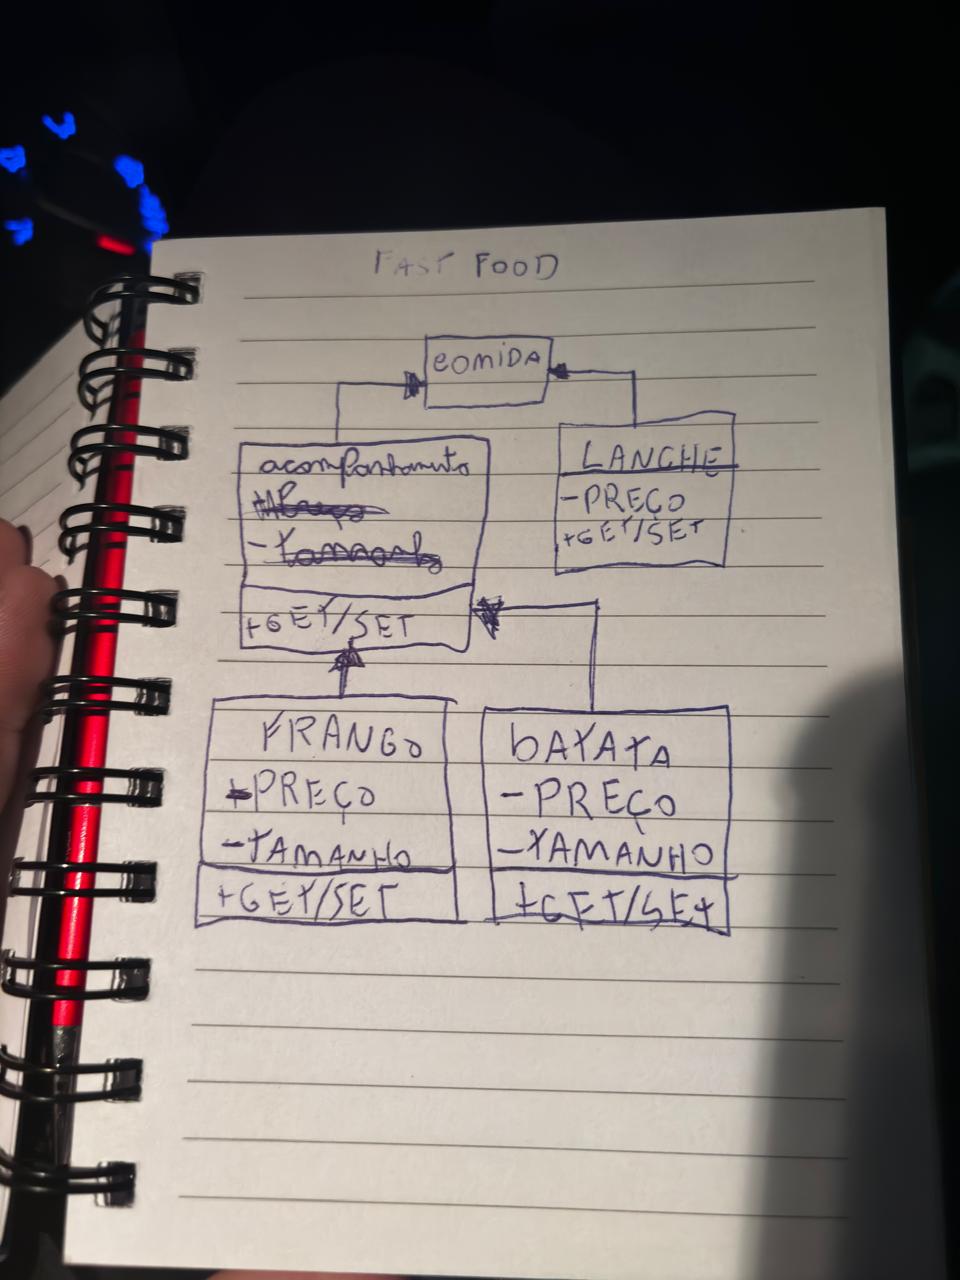 FAST FOOD
COMIDA
acompanhamento
+Preço
-tamanho
+GET/SET
LANCHE
-PREÇO
+GET/SET
FRANGO
-PREÇO
-TAMANHO
+GET/SET
bATATA
-PREÇO
-TAMANHO
+GET/SET